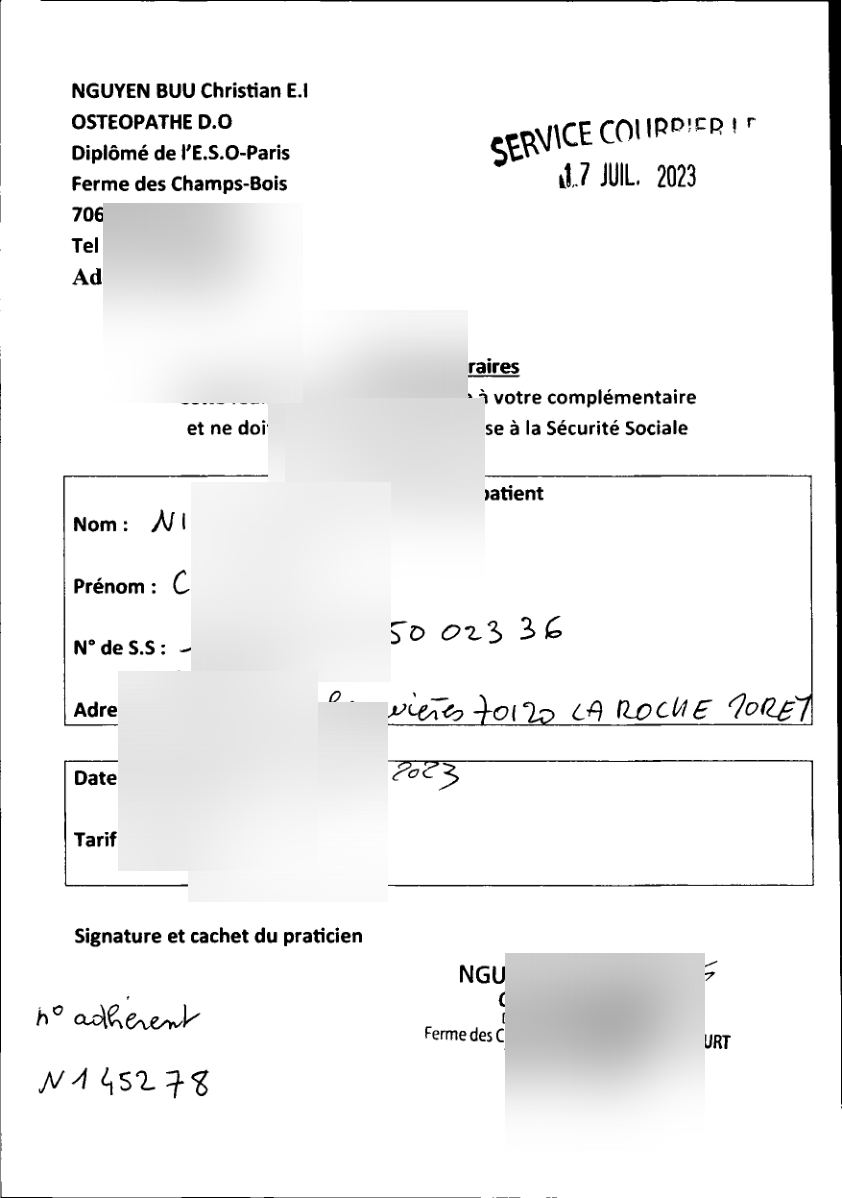 NGUYEN BUU Christian E.I
OSTEOPATHE D.O
Diplômé de l'E.S.O-Paris
Ferme des Champs-Bois
706
Tel
Ad
SERVICE COURRIER
17 JUIL. 2023
raires
à votre complémentaire
et ne doi
se à la Sécurité Sociale
patient
Nom : NI
Prénom : C
N° de S.S :
50 023 36
Adre
vières 70120 LA ROCHE MOREY
Date
2023
Tarif
Signature et cachet du praticien
NGU
Ferme des C
URT
n° adhérent
N145278